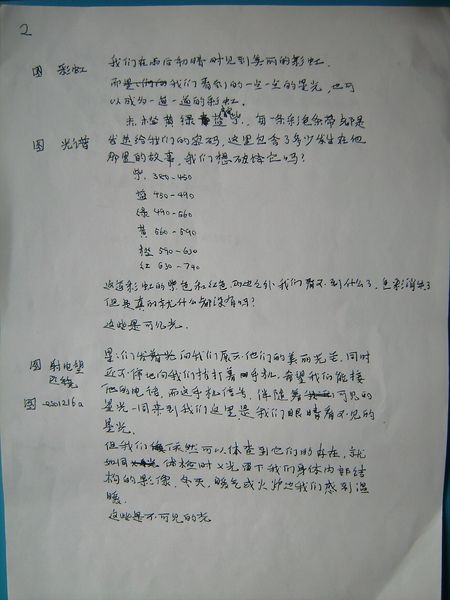 2
图 彩虹 我们在雨后初晴时见到美丽的彩虹.
而我们看到的一点一点的星光,也可
以成为一道一道的彩虹.
红橙黄绿蓝靛紫.. 每一条彩色条带都是
图 光谱 发送给我们的密码,这里包含了多少发生在他
那里的故事,我们想破译它吗?
紫. 380-450
蓝 450-490
绿 490-560
黄 560-590
橙 590-630
红 630-790
这道彩虹的紫色和红色两边之外我们看不到什么了,色彩消失了
但是真的就什么都没有吗?
这些是可见光.
图 射电望远镜 星星们发着光向我们展示他们的美丽光芒,同时
还不停地向我们拨打着手机,希望我们能接
图 eso1216a 他的电话,而这手机信号,伴随着可见的
星光一同来到我们这里是我们眼睛看不见的
星光.
但我们依然可以体查到它们的存在,就
如同体检时X光留下我们身体内部结
构的影像,冬天,暖气或火炉边我们感到温
暖.
这些是不可见的光